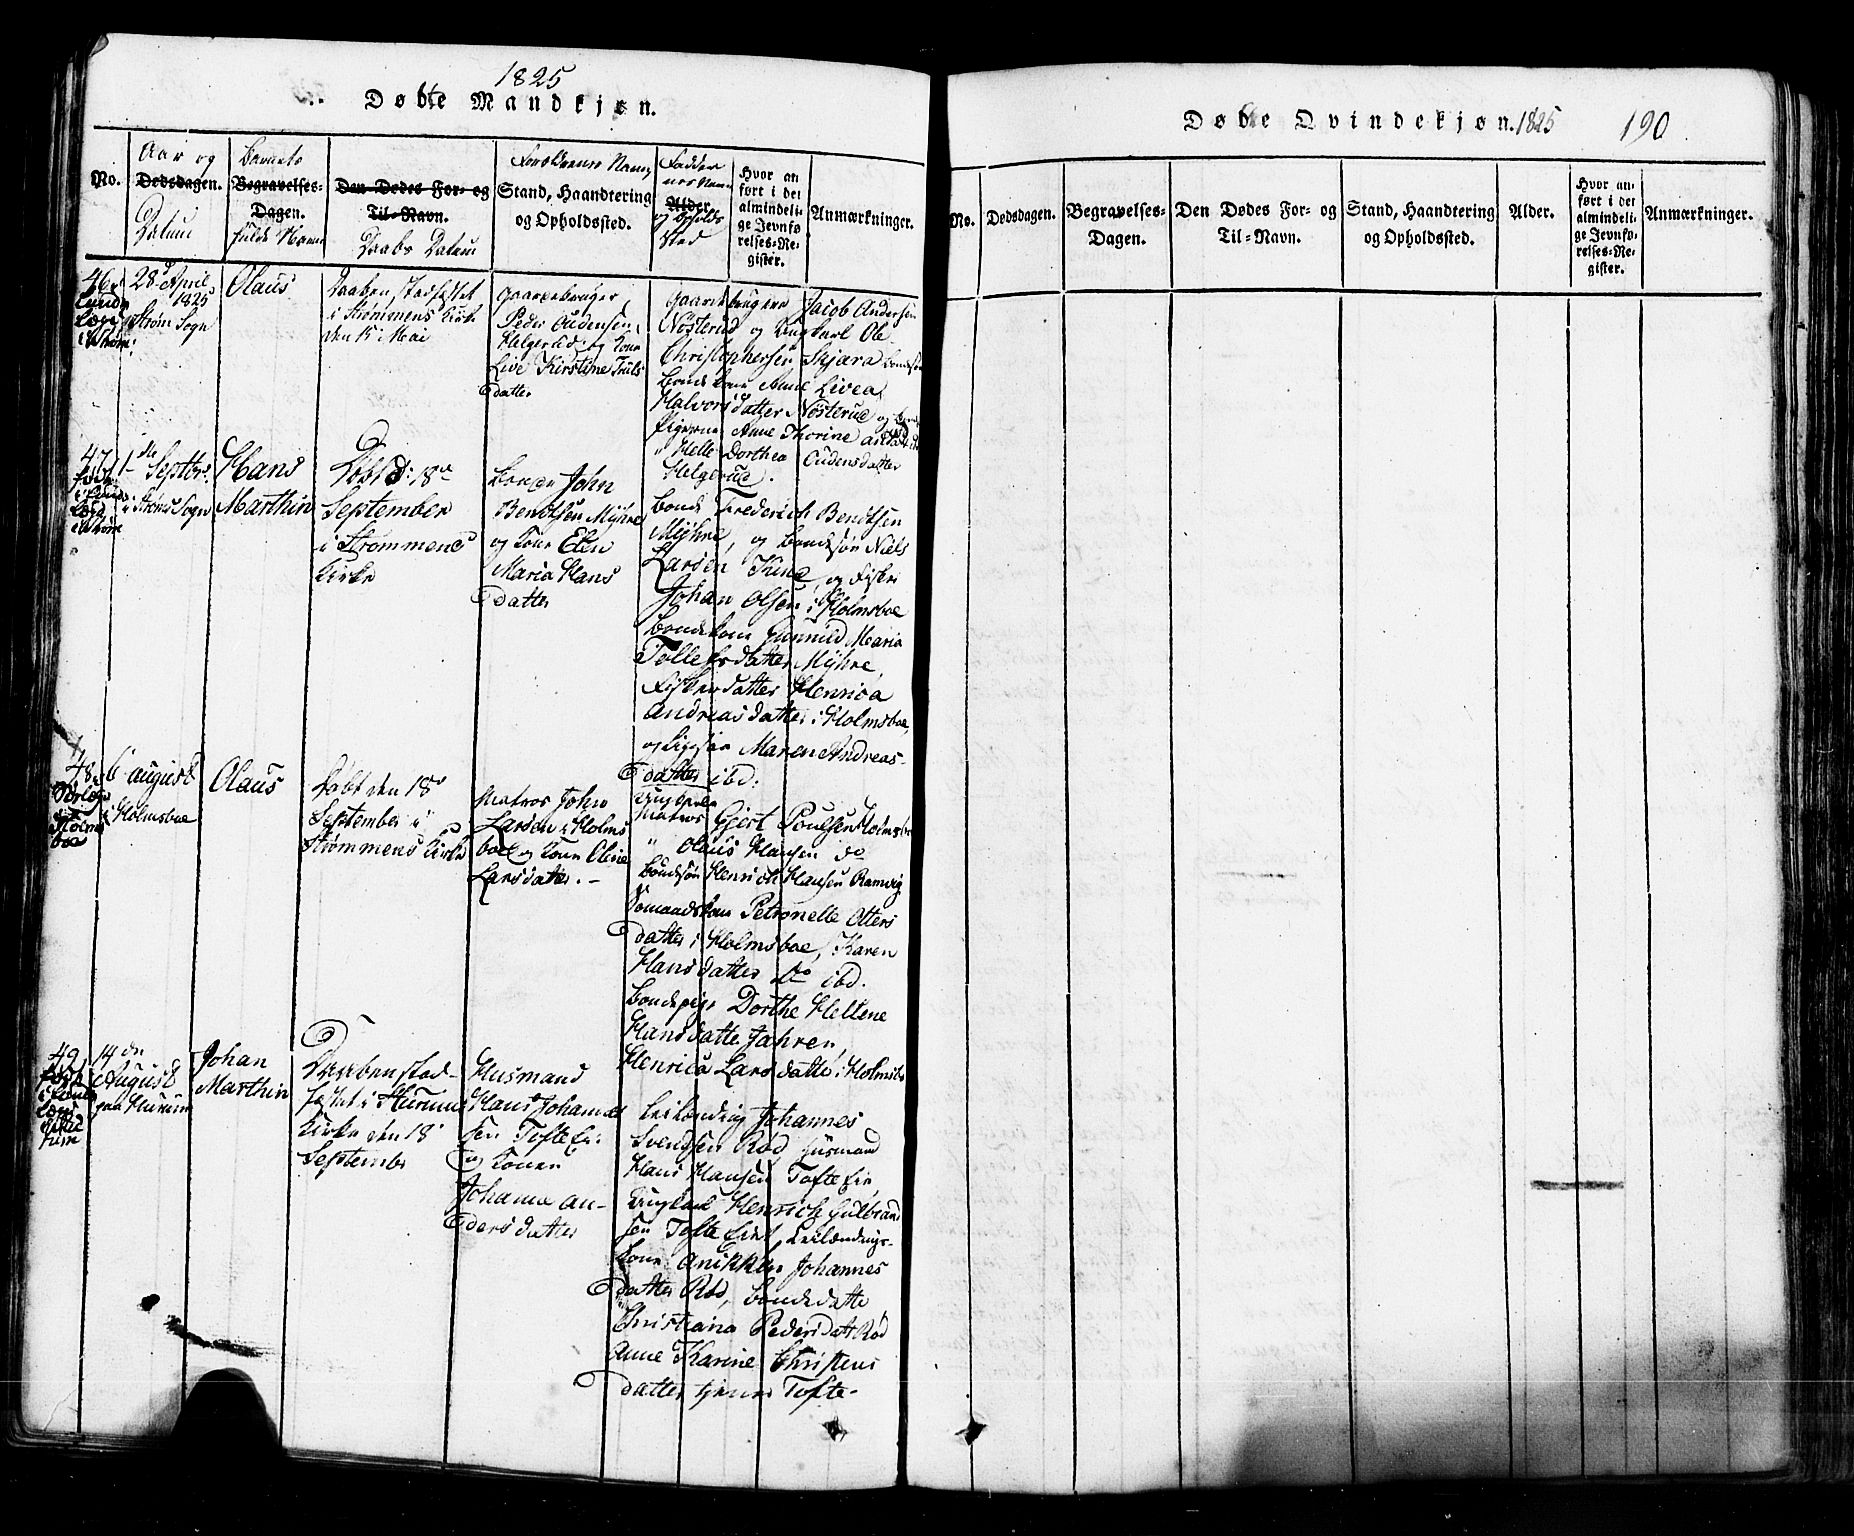 1825
Døbte Mandkjøn.
No.
Aar og
Dødsdagen.
Datum
Barnets
Begravelses-
Dagen.
fulde Navn
Den Dødes For- og
Til-Navn.
Daabs Datum
Forældrenes Navn,
Stand, Haandtering
og Opholdssted.
Fadder
nes Navn
Alder.
og Opholds
sted
Hvor an
ført i det
almindeli-
ge Jevnfø-
relses-Re-
gister.
Anmærkninger.
46
28 April
1825
Strøm Sogn
Olaus
Daaben stadfæstet
i Strømmens Kirke
den 15 Mai
Gaardebruger
Peder Oudensen
Helgerud og Kone
Live Kirstine Truls
datter
Gaardbrugere Jacob Andersen
Nösterud og Ungkarl Ole
Christophersen Skjæra
Bondekone Anne Livea
Halvorsdatter Nösterud og
Pigerne Anne Thorine
Helle Dorthea Oudensdatter
Helgerud.
47
1 Septbr.
i Strøms Sogn
Hans
Marthin
Døbt d: 18
September
i Strömmens
Kirke
Bonde John
Bendtsen Mÿhre
og Kone Elen
Maria Hans
datter
Bonde Frederich Bendtsen
Mÿhre, og Bondesøn Niels
Larsen, og Fisker
Johan Olsen i Holmsboe
Bondekone Gunnild Maria
Tollefsdatter Mÿhre,
Fiskerdatter Henrica
Andreasdatter i Holmsboe,
og Maren Andreas-
datter ibd.
48
6 August
i Holmsboe
Olaus
Døbt den 18
September i
Strømmens Kirke
Matros John
Larsen i Holms
boe og Kone Oline
Larsdatter. -
Ungkarl
Matros Gjert Poulsen Holmsboe
" Olaus Hansen do
Bondesøn Henrich Hansen Ramvig
Sömandskone Petronelle Otters
datter i Holmsboe, Karen
Hansdatter do ibd.
Bondepige Dorthe Hellene
Hansdatter Jahren,
Henrica Larsdatter i Holmsboe
49
14 de
August
paa Hurum
Johan
Marthin
Daaben stad-
fæstet i Hurums
Kirke den 18
September
Husmand
Hans Johanne
sen Tofte Eie
og Konen
Johanna An-
dersdatter
Leilænding Johannes
Svendsen Rød, Husmand
Hans Hansen Tofte Eie
Ungkarl Henrich Gulbrand
sen Tofte Eie, Leilændings-
kone Anikken Johannes
datter Rød, Bondedatter
Christiana Pedersdatt Rød
Anne Karine Christens
datter tjener Tofte-
Døbte Qvindekjøn. 1825
190
No.
Dødsdagen.
Begravelses-
Dagen.
Den Dødes For- og
Til-Navn.
Stand, Haandtering
og Opholdssted.
Alder.
Hvor an-
ført i det
almindeli-
ge Jevnfø-
relses-Re-
gister.
Anmærkninger.